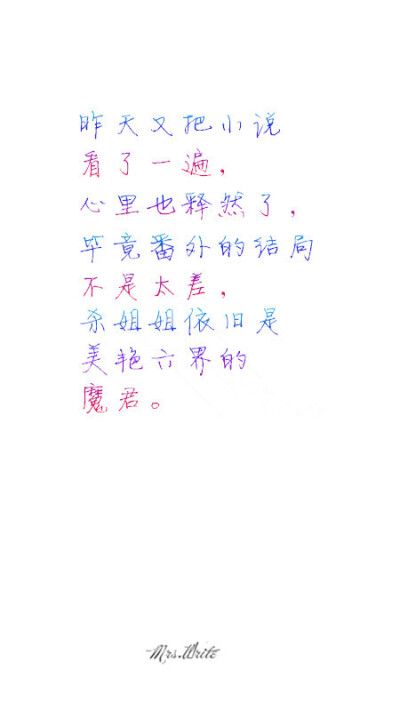 昨天又把小说
看了一遍，
心里也释然了，
毕竟番外的结局
不是太差，
杀姐姐依旧是
美艳六界的
魔君。
Mrs.Write